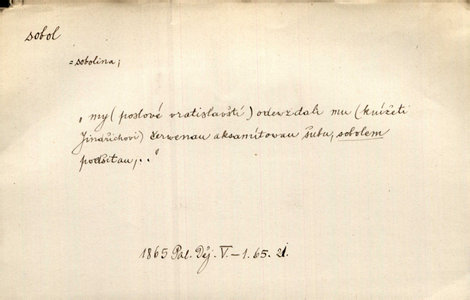 sobol
= sobolina;
„ my ( poslové vratislavští ) odevzdali mu ( knížeti
Jindřichovi ) červenau aksamitovau šubu, sobolem
podšitau, .. "
1865 Pal. Děj. V. – 1. 65. 21.